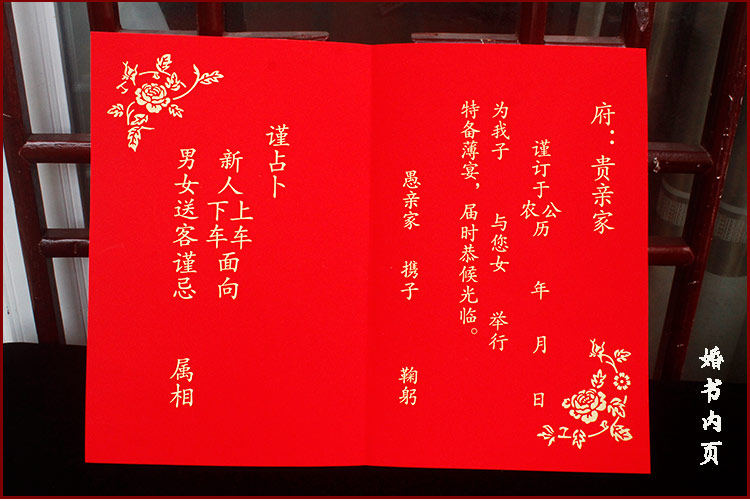 府：贵亲家
谨订于 公农历 年 月 日
为我子 与您女 举行
特备薄宴，届时恭候光临。
愚亲家 携子 鞠躬
谨占卜
新人上车下车面向
男女送客谨忌 属相
婚书内页